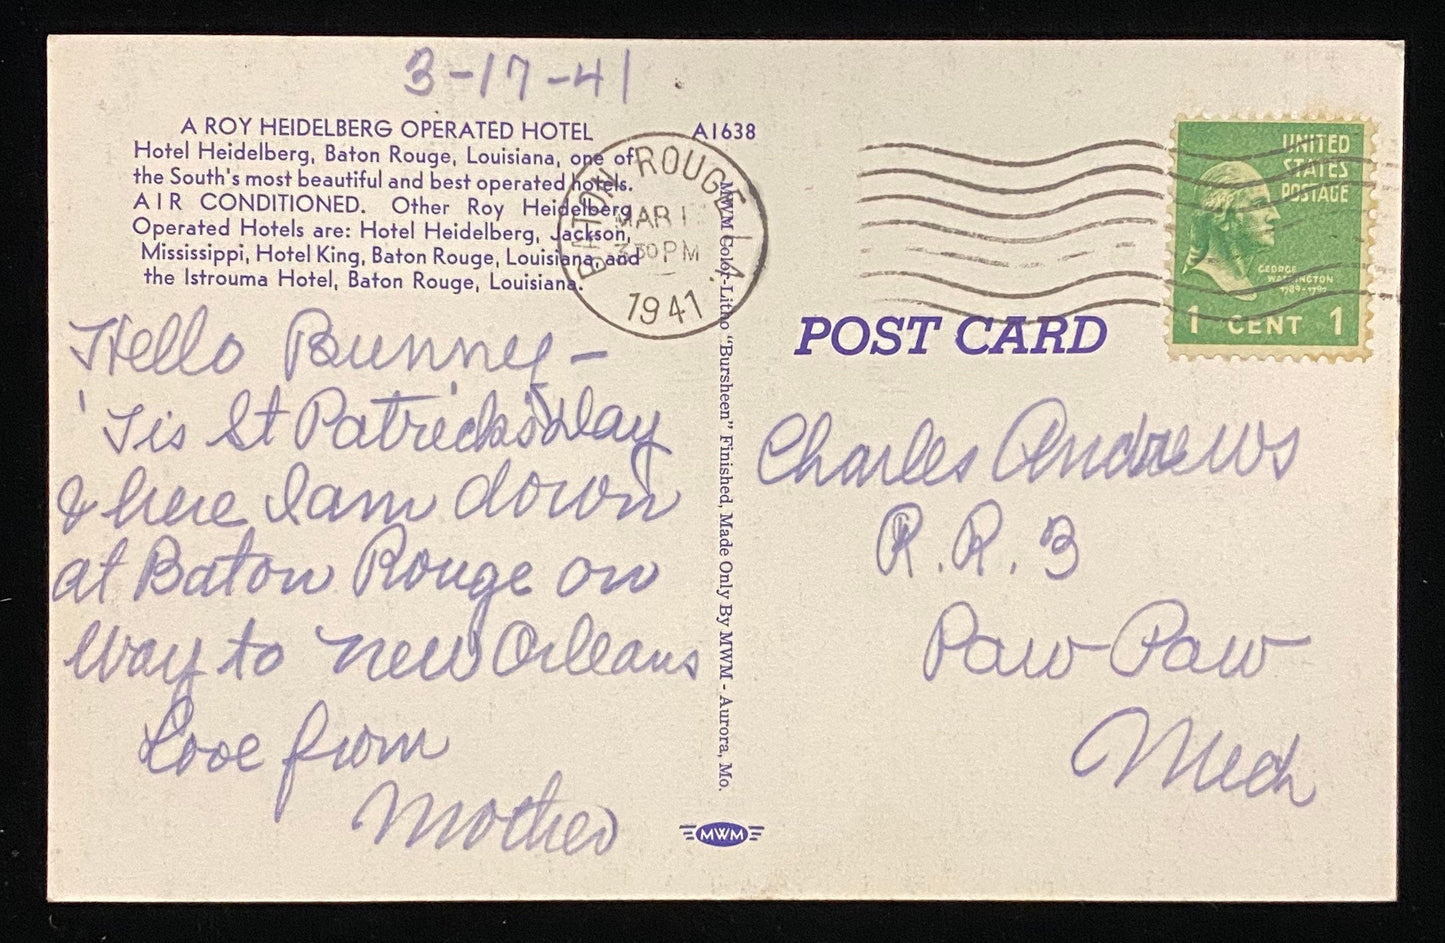 3-17-41
A ROY HEIDELBERG OPERATED HOTEL
Hotel Heidelberg, Baton Rouge, Louisiana, one of
the South's most beautiful and best operated hotels.
AIR CONDITIONED. Other Roy Heidelberg
Operated Hotels are: Hotel Heidelberg, Jackson,
Mississippi, Hotel King, Baton Rouge, Louisiana, and
the Istrouma Hotel, Baton Rouge, Louisiana.
A1638
Hello Bunney-
'Tis St Patrick's Day
& here I am down
at Baton Rouge on
Way to New Orleans
Love from
Mother
BATON ROUGE
MAR 1
3 30 PM
1941
MWM Color-Litho "Bursheen" Finished, Made Only By MWM - Aurora, Mo.
MWM
UNITED
STATES
POSTAGE
GEORGE
WASHINGTON
1789-1797
1 CENT 1
POST CARD
Charles Andrews
R.R. 3
Paw-Paw
Mich